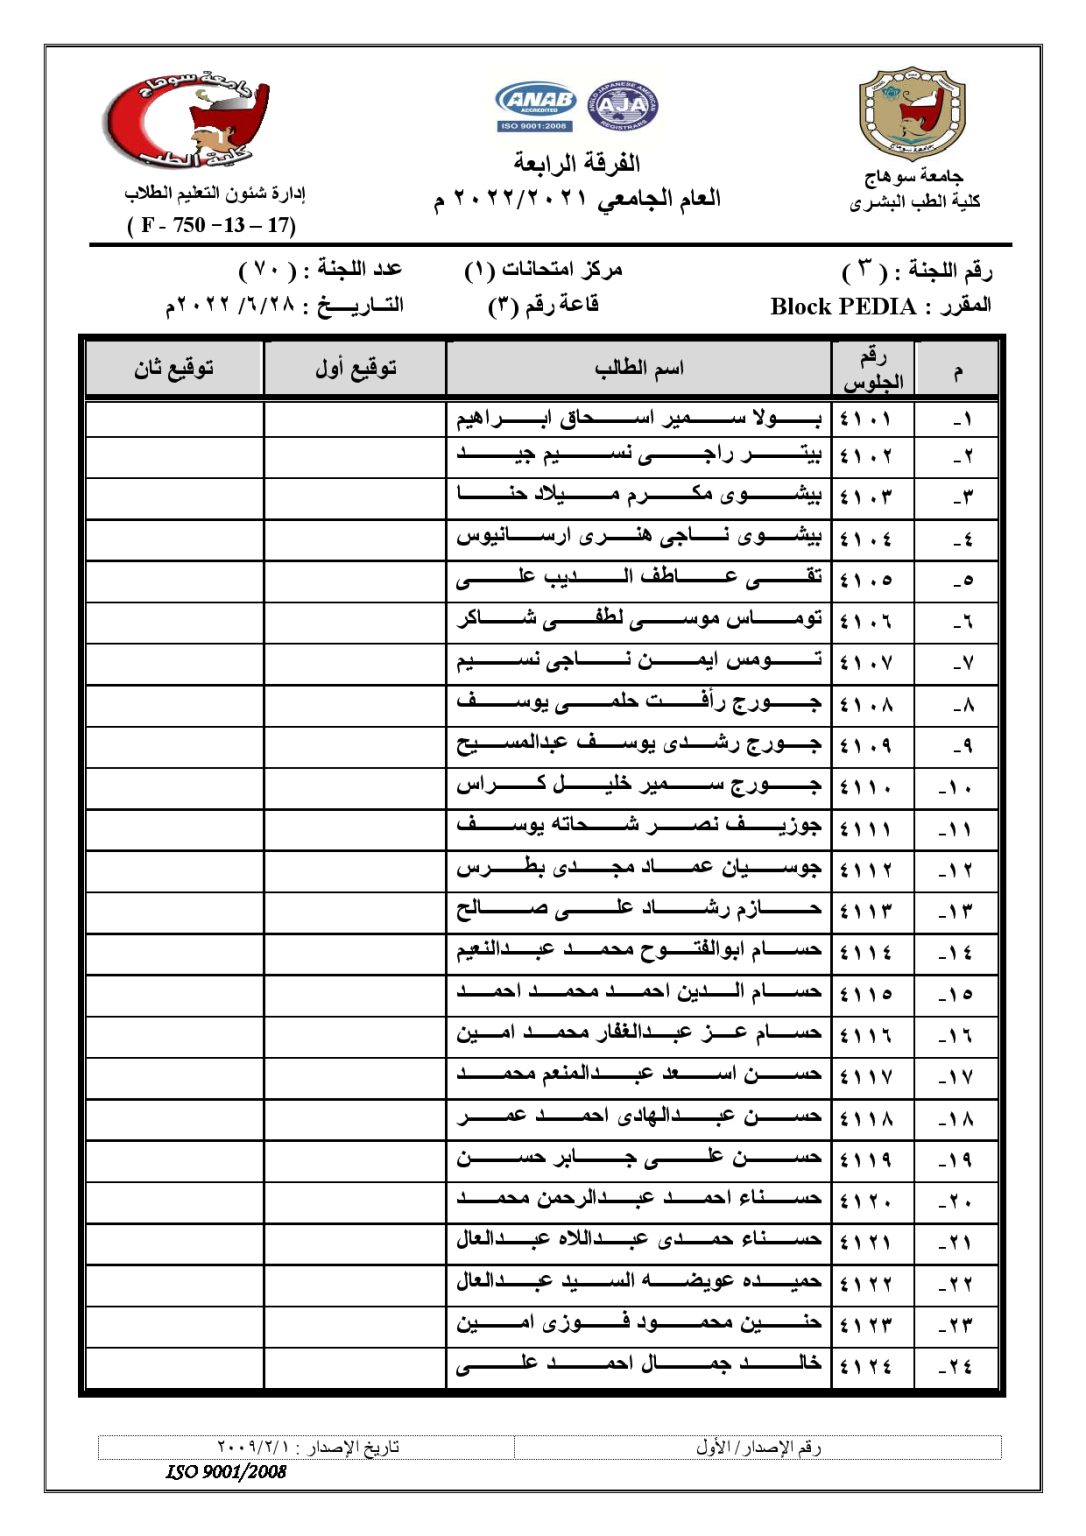 جامعة سوهاج
كلية الطب
ANAB
ACCREDITED
ISO 9001:2008
ANGLO JAPANESE AMERICAN
AJA
REGISTRARS
جامعة سوهاج
جامعة سوهاج
كلية الطب البشرى
الفرقة الرابعة
العام الجامعي ٢٠٢٢/٢٠٢١ م
إدارة شئون التعليم الطلاب
( F - 750 –13 – 17)
رقم اللجنة : ( ٣ ) مركز امتحانات (١) عدد اللجنة : ( ٧٠ )
المقرر : Block PEDIA قاعة رقم (٣) التاريخ : ٢٠٢٢ /٦/٢٨م
م رقم الجلوس اسم الطالب توقيع أول توقيع ثان
١- ٤١٠١ بولا سمير اسحاق ابراهيم
٢- ٤١٠٢ بيتر راجى نسيم جيد
٣- ٤١٠٣ بيشوى مكرم ميلاد حنا
٤- ٤١٠٤ بيشوى ناجى هنرى ارسانيوس
٥- ٤١٠٥ تقى عاطف الديب على
٦- ٤١٠٦ توماس موسى لطفى شاكر
٧- ٤١٠٧ تومس ايمن ناجى نسيم
٨- ٤١٠٨ جورج رأفت حلمى يوسف
٩- ٤١٠٩ جورج رشدى يوسف عبدالمسيح
١٠- ٤١١٠ جورج سمير خليل كراس
١١- ٤١١١ جوزيف نصر شحاته يوسف
١٢- ٤١١٢ جوسيان عماد مجدى بطرس
١٣- ٤١١٣ حازم رشاد على صالح
١٤- ٤١١٤ حسام ابوالفتوح محمد عبدالنعيم
١٥- ٤١١٥ حسام الدين احمد محمد احمد
١٦- ٤١١٦ حسام عز عبدالغفار محمد امين
١٧- ٤١١٧ حسن اسعد عبدالمنعم محمد
١٨- ٤١١٨ حسن عبدالهادى احمد عمر
١٩- ٤١١٩ حسن على جابر حسن
٢٠- ٤١٢٠ حسناء احمد عبدالرحمن محمد
٢١- ٤١٢١ حسناء حمدى عبداللاه عبدالعال
٢٢- ٤١٢٢ حميده عويضه السيد عبدالعال
٢٣- ٤١٢٣ حنين محمود فوزى امين
٢٤- ٤١٢٤ خالد جمال احمد على
رقم الإصدار/ الأول تاريخ الإصدار : ٢٠٠٩/٢/١
ISO 9001/2008